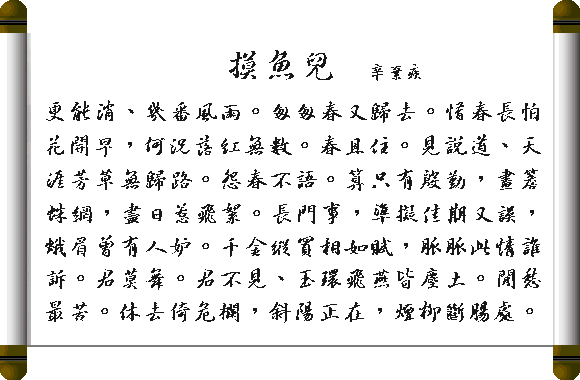 摸魚兒 辛棄疾
更能消、幾番風雨。匆匆春又歸去。惜春長怕
花開早，何況落紅無數。春且住。見說道、天
涯芳草無歸路。怨春不語。算只有殷勤，畫簷
蛛網，盡日惹飛絮。長門事，準擬佳期又誤，
蛾眉曾有人妒。千金縱買相如賦，脈脈此情誰
訴。君莫舞。君不見、玉環飛燕皆塵土。閒愁
最苦。休去倚危欄，斜陽正在，煙柳斷腸處。